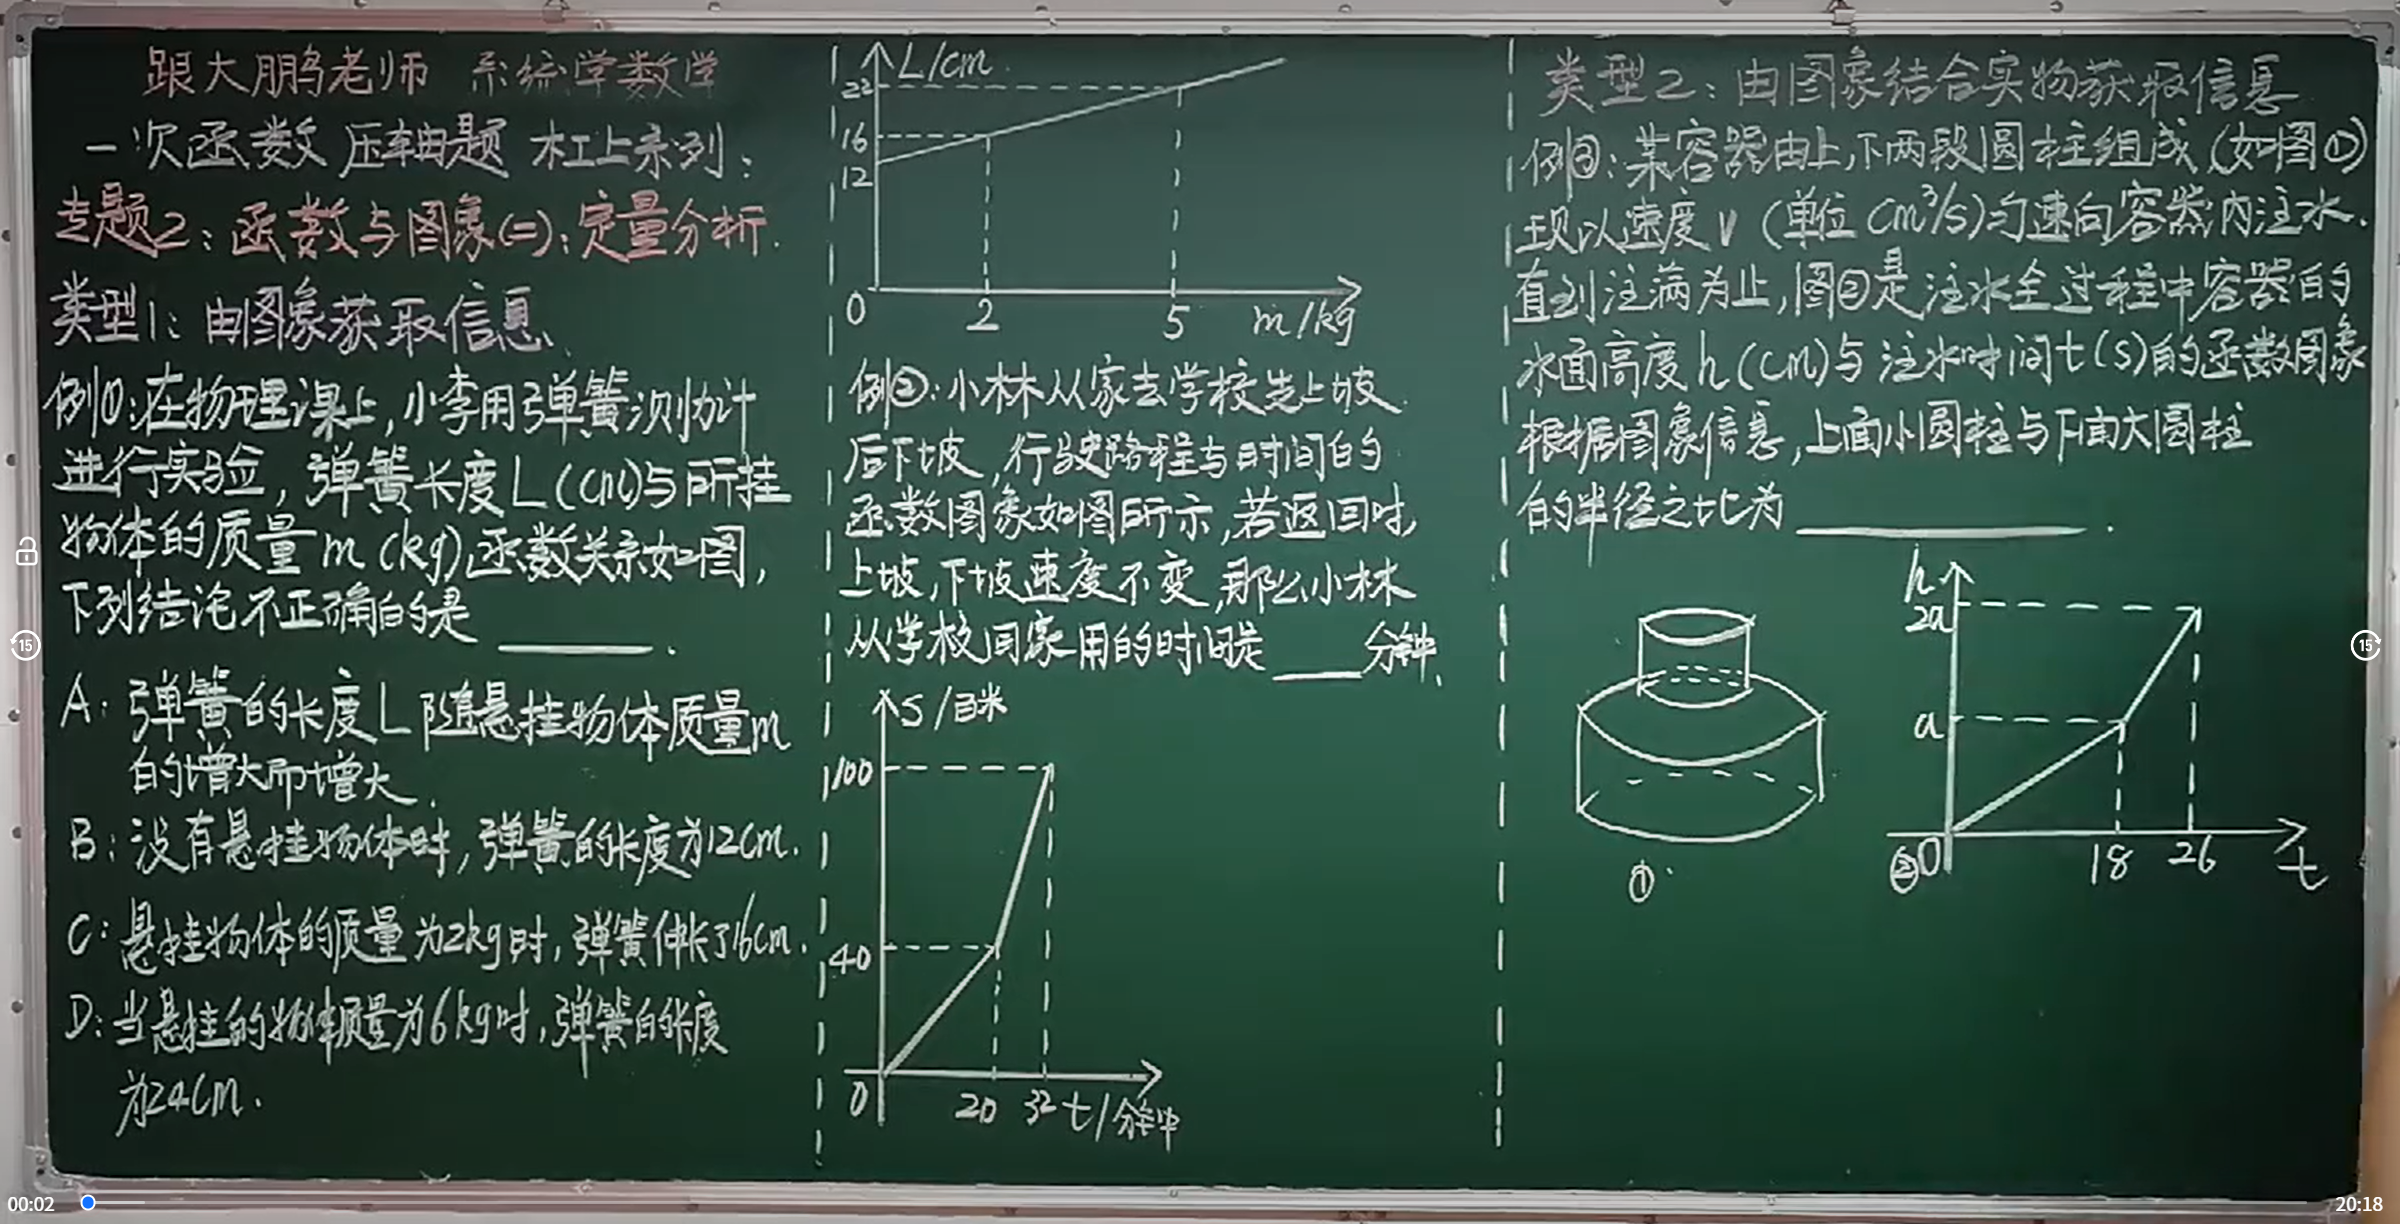 跟大鹏老师 系统学数学
一次函数 压轴题 杠上系列：
专题2：函数与图象(二)：定量分析.
类型1：由图象获取信息、
例①：在物理课上，小李用弹簧测力计
进行实验，弹簧长度L(cm)与所挂
物体的质量m(kg)函数关系如图，
下列结论不正确的是______.
A：弹簧的长度L随悬挂物体质量m
的增大而增大.
B：没有悬挂物体时，弹簧的长度为12cm.
C：悬挂物体的质量为2kg时，弹簧伸长了16cm.
D：当悬挂的物体质量为6kg时，弹簧的长度
为24cm.
L/cm
22
16
12
0 2 5 m/kg
例②：小林从家去学校先上坡
后下坡，行驶路程与时间的
函数图象如图所示，若返回时，
上坡，下坡速度不变，那么小林
从学校回家用的时间是____分钟.
S/百米
100
40
0 20 32 t/分钟
类型2：由图象结合实物获取信息
例③：某容器由上，下两段圆柱组成(如图①)
现以速度v(单位cm³/s)匀速向容器内注水.
直到注满为止，图②是注水全过程中容器的
水面高度h(cm)与注水时间t(s)的函数图象
根据图象信息，上面小圆柱与下面大圆柱
的半径之比为__________.
①
h
2a
a
②0 18 26 t
00:02
20:18
15
15